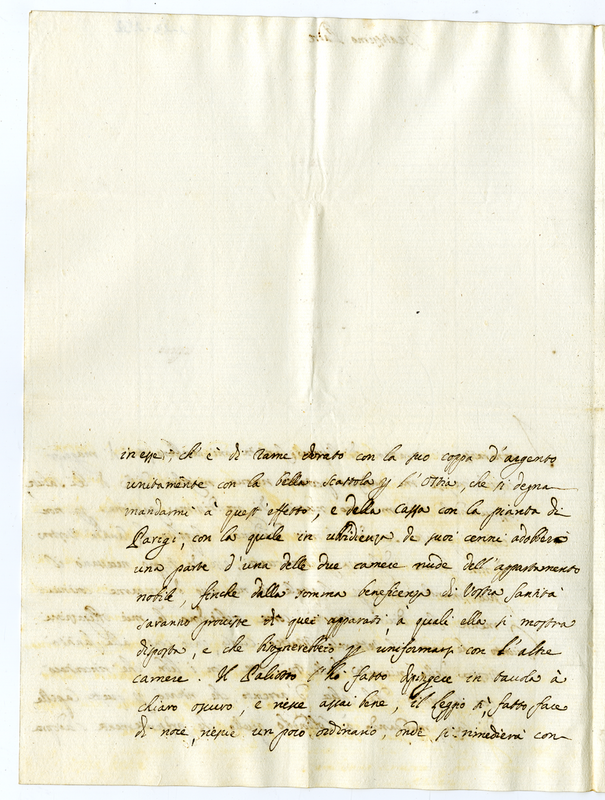 in esse, ch' è di rame dorato con la suo coppa d'argento
unitamente con la bella scattola p l'Ostia, che si degna
mandarmi à quest'effetto, e della Cassa con la pianta di
Parigi, con la quale in ubidienza de suoi cenni adobberò
una parte d'una delle due camere nude dell'appartamento
nobile, finche dalla somma beneficenza di Vostra Santità
saranno proviste di quei apparati, à quali ella si mostra
disposta, e che bisognerebbero p uniformarsi con l'altre
camere. Il Paliotto l'ho fatto dipingere in tavola à
chiaro oscuro, e riesce assai bene, il leggio si è fatto fare
di noce, riesce un poco ordinario, onde si rimedierà con